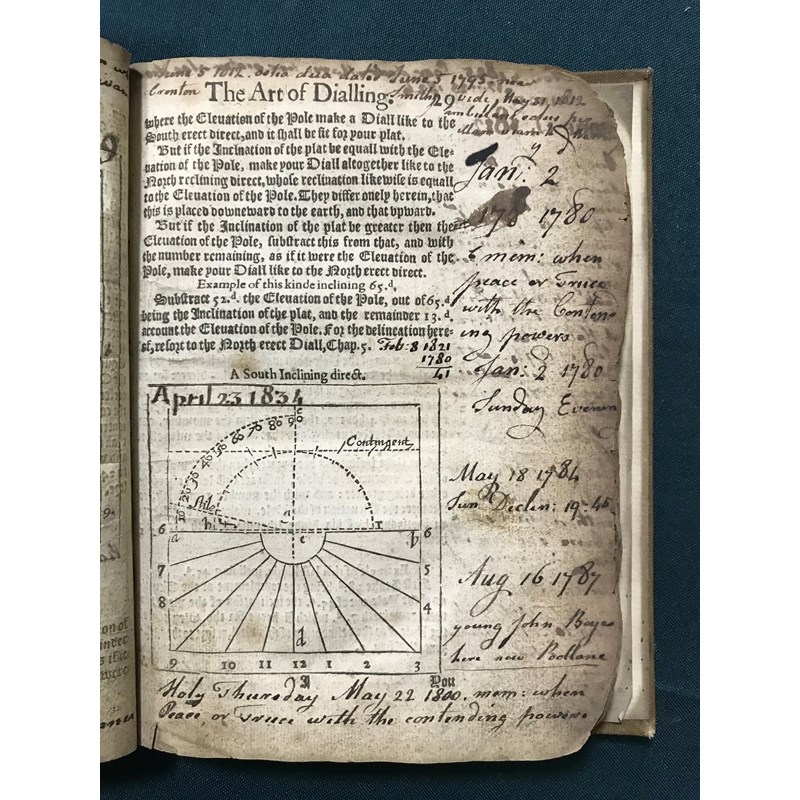 June 5 1812. dies June 5 1795.
The Art of Dialling. 29
Smith vide, May 31, 1812
where the Eleuation of the Pole make a Diall like to the
South erect direct, and it shall be fit for your plat.
But if the Inclination of the plat be equall with the Ele-
uation of the Pole, make your Diall altogether like to the
North reclining direct, whose reclination likewise is equall
to the Eleuation of the Pole. They differ onely herein, that
this is placed downeward to the earth, and that vpward.
But if the Inclination of the plat be greater then the
Eleuation of the Pole, substract this from that, and with
the number remaining, as if it were the Eleuation of the
Pole, make your Diall like to the North erect direct.
Example of this kinde inclining 65.d.
Substract 52.d. the Eleuation of the Pole, out of 65.d.
being the Inclination of the plat, and the remainder 13.d.
account the Eleuation of the Pole. For the delineation here-
of, resort to the North erect Diall, Chap. 5.
Feb: 8 1821
1780
41
A South Inclining direct.
April 23 1834
c
10 20 30 40 50 60 70 80 90
Contingent
Stile
h
r
6 a e b 6
7 5
8 4
d
9 10 11 12 1 2 3
I You
Holy Thursday May 22 1800. mem: when
Peace, or Truce with the contending powers
y d
Jan: 2
178 1780
mem: when
peace or Truce
with the Contend
ing powers
Jan: 2 1780
Sunday Evenin
May 18 1784
Sun Declin: 19:45
Aug 16 1787
young John Boyes
here new Bedlane